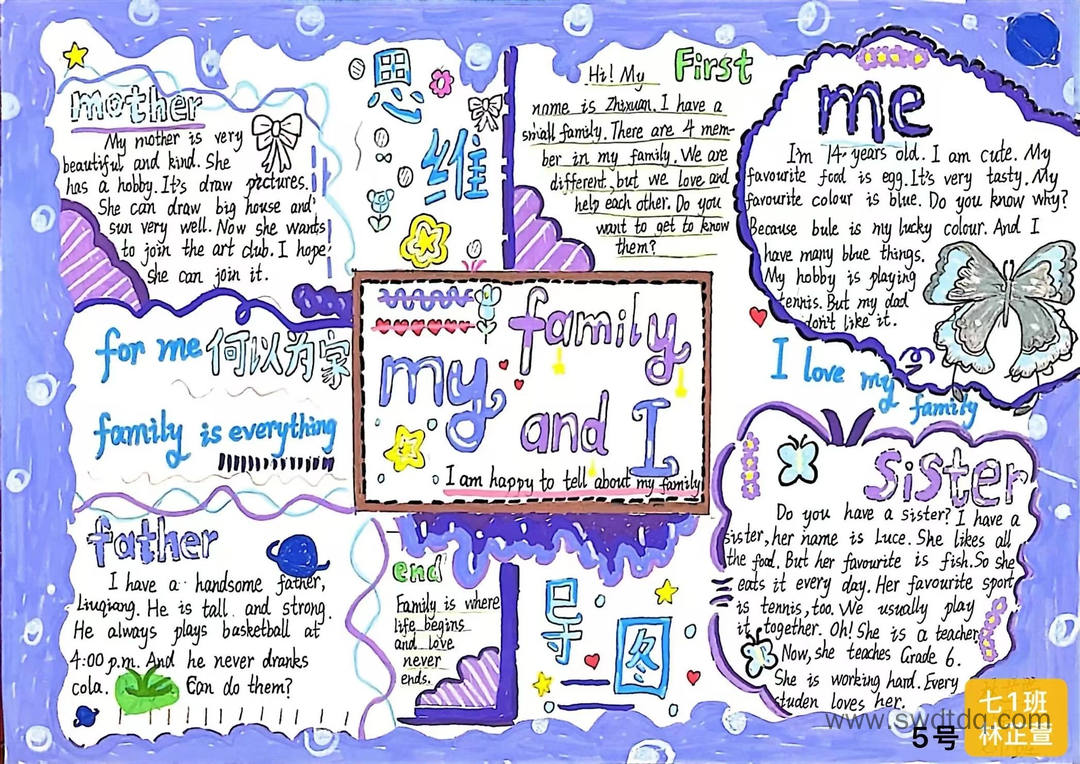 mother
My mother is very
beautiful, and kind. She
has a hobby. It's draw pictures.
She can draw big house and
sun very well. Now she wants
to join the art club. I hope
she can join it.
思
维
First
Hi! My
name is Zhixuan. I have a
small family. There are 4 mem-
ber in my family. We are
different, but we love and
help each other. Do you
want to get to know
them?
me
I'm 14 years old. I am cute. My
favourite food is egg. It's very tasty. My
favourite colour is blue. Do you know why?
Because bule is my lucky colour. And I
have many blue things.
My hobby is playing
tennis. But my dad
don't like it.
for me 何以为家
family is everything
my family
and I
I am happy to tell about my family
I love my
family
father
I have a handsome father,
Liuqiang. He is tall and strong.
He always plays basketball at
4:00 p.m. And he never dranks
cola. Can do them?
end
Family is where
life begins
and love
never
ends.
导
图
sister
Do you have a sister? I have a
sister, her name is Luce. She likes all
the food. But her favourite is fish. So she
eats it every day. Her favourite sport
is tennis, too. We usually play
it together. Oh! She is a teacher
Now, she teaches Grade 6.
She is working hard. Every
studen loves her.
www.swdtdq.com
5号
七1班
林芷萱